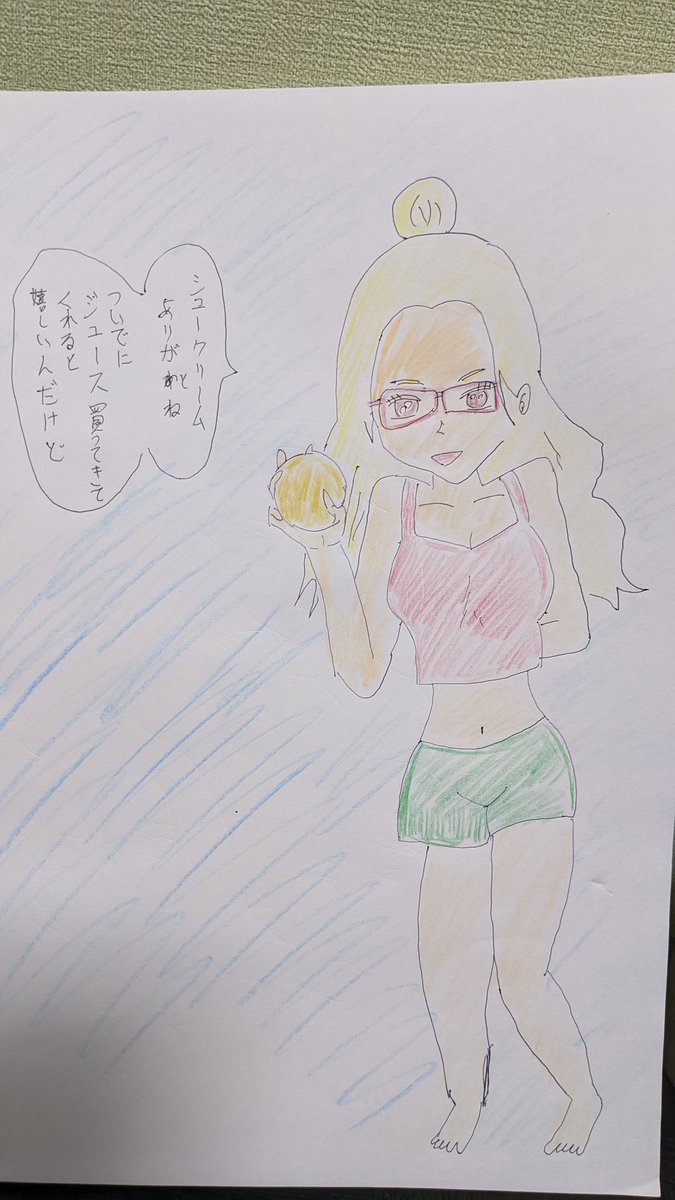 シュークリーム
ありがとね
ついでに
ジュース買ってきて
くれると
嬉しいんだけど